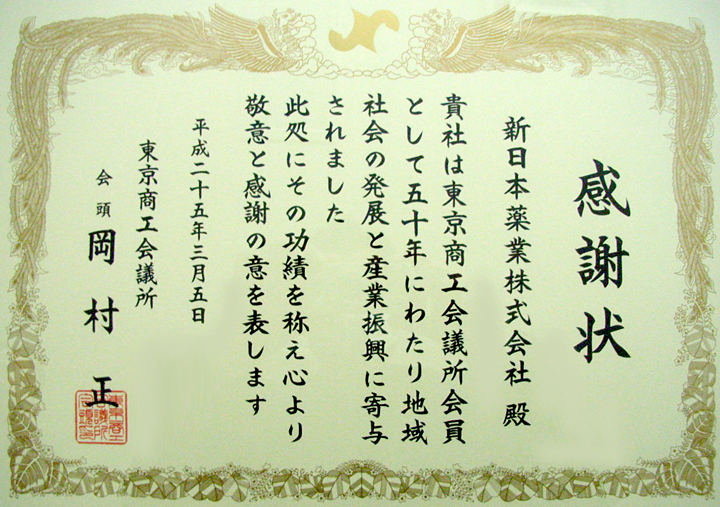 感謝状
新日本薬業株式会社 殿
貴社は東京商工会議所会員
として五十年にわたり地域
社会の発展と産業振興に寄与
されました
此処にその功績を称え心より
敬意と感謝の意を表します
平成二十五年三月五日
東京商工会議所
会頭 岡村 正